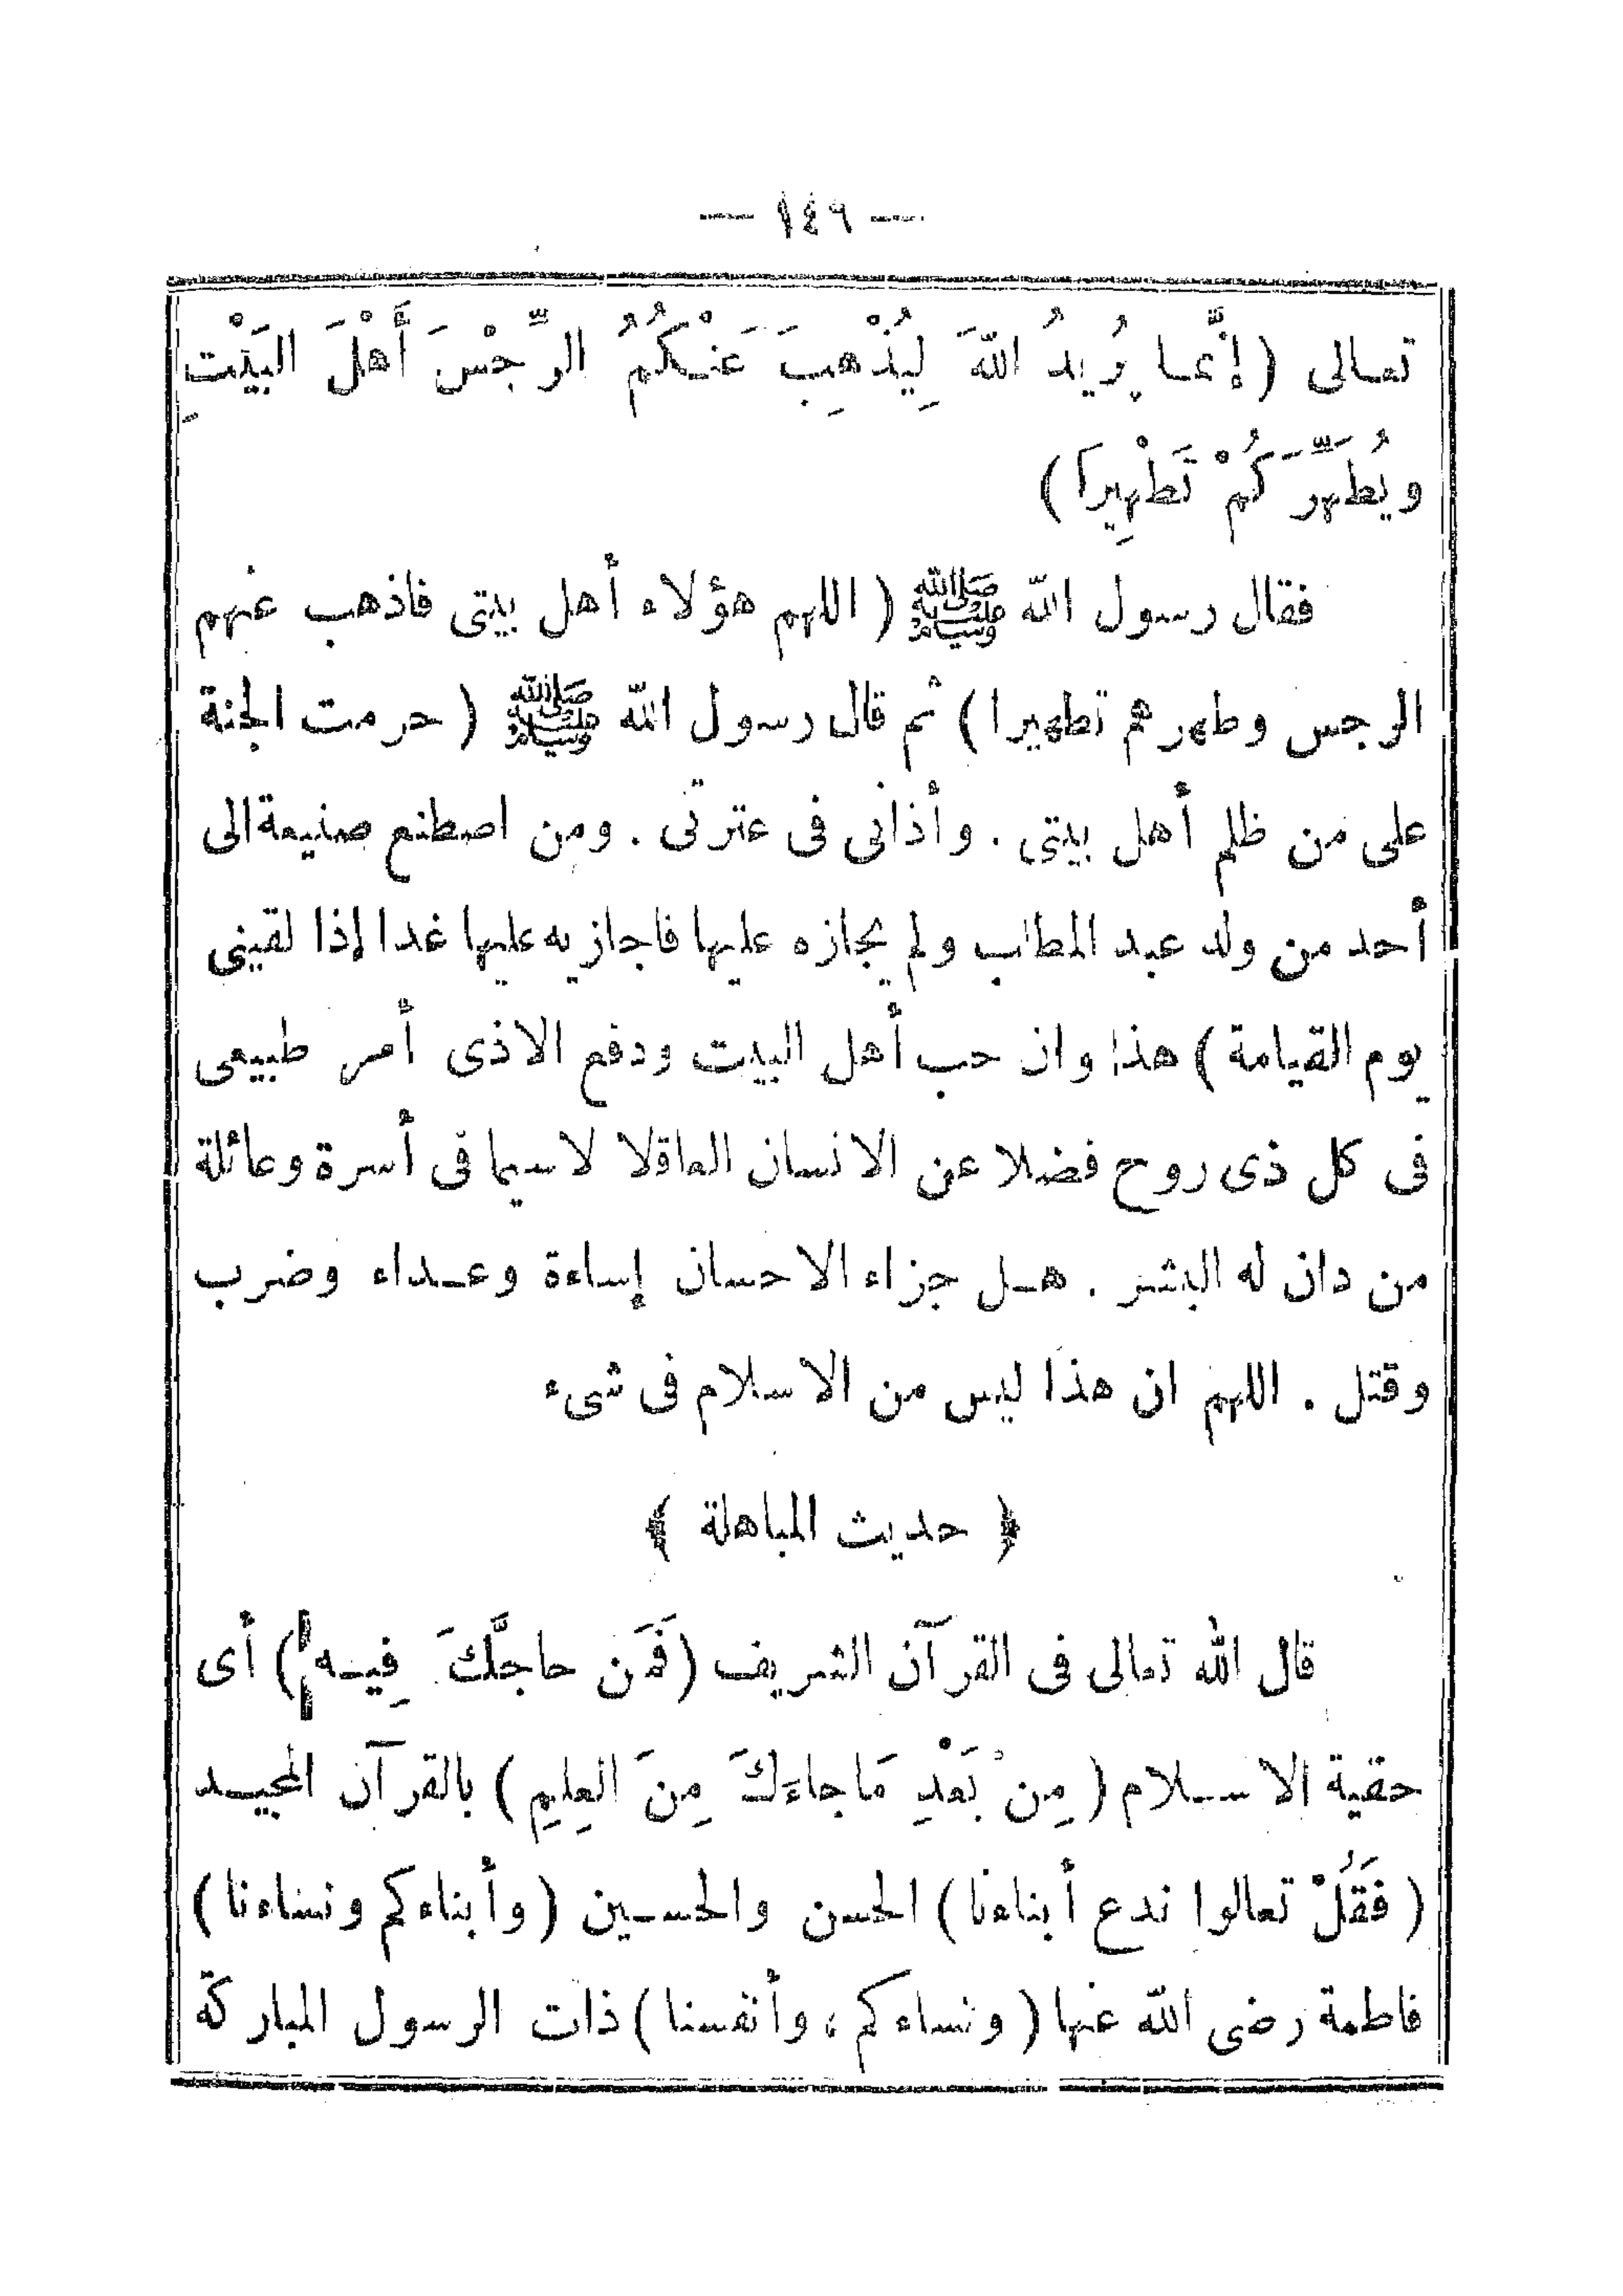 — ١٤٩ —
تعالى (إنَّما يُرِيدُ اللّهَ لِيُذْهِبَ عَنْكُمُ الرِّجْسَ أَهْلَ البَيْتِ
ويُطَهِّرَكُمْ تَطْهِيراً)
فقال رسول اللّه ﷺ ( اللهم هؤلاء أهل بيتى فاذهب عنهم
الرجس وطهرهم تطهيرا ) ثم قال رسول اللّه ﷺ ( حرمت الجنة
على من ظلم أهل بيتى . وأذانى فى عترتى . ومن اصطنع صنيعة الى
أحد من ولد عبد المطلب ولم يجازه عليها فاجازيه عليها غدا إذا لقينى
يوم القيامة ) هذا وان حب أهل البيت ودفع الاذى أمر طبيعى
فى كل ذى روح فضلا عن الانسان العاقلا لاسيما فى أسرة وعائلة
من دان له البشر . هل جزاء الاحسان إساءة وعداء وضرب
وقتل . اللهم ان هذا ليس من الاسلام فى شىء
﴿ حديث المباهلة ﴾
قال اللّه تعالى فى القرآن الشريف (فَمَن حاجَّكَ فِيه ) أى
حقية الاسلام ( مِنْ بَعْدِ مَاجاءَكَ مِنَ العِلِمِ ) بالقرآن المجيد
( فَقُلْ تعالوا ندع أبناءنا ) الحسن والحسين ( وأبناءكم ونساءنا )
فاطمة رضى اللّه عنها ( ونساءكم ، وأنفسنا ) ذات الرسول المباركة